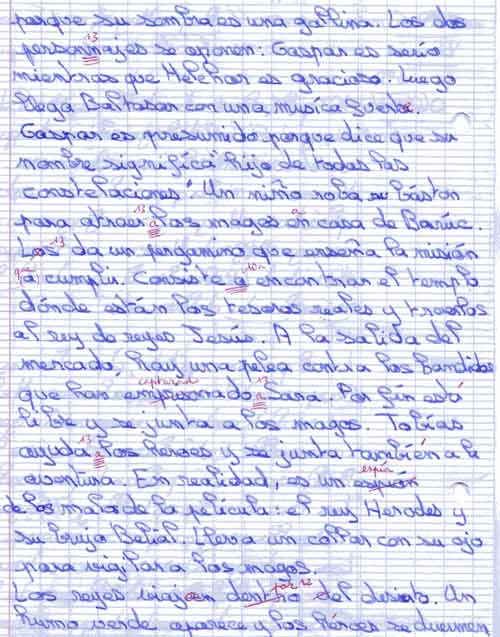 porque su sombra es una gallina. Los dos
personnajes se oponen: Gaspar es serio
mientras que Melchor es gracioso. Luego
llega Baltasar con una musica fuerte.
Gaspar es presumido porque dice que su
nombre significa "hijo de todas las
constelaciones". Un niño roba su báston
para atraer a los magos en casa de Barúc.
Los da un pergamino que enseña la misión
a cumplir. Consiste a encontrar el templo
dónde están los tesoros reales y traerlos
al rey de reyes Jesús. A la salida del
mercado, hay una pelea contra los bandidos
capturado
que han emprisonado a Sara. Por fin está
libre y se junta a los magos. Tobías
ayuda a los heroes y se junta también a la
espía
aventura. En realidad, es un espión
de los malos de la película: el rey Herodes y
su bruja Belial. Lleva un collar con su ojo
para vigilar a los magos.
por el
Los reyes viajan dentro del desierto. Un
humo verde aparece y los héroes se duermen